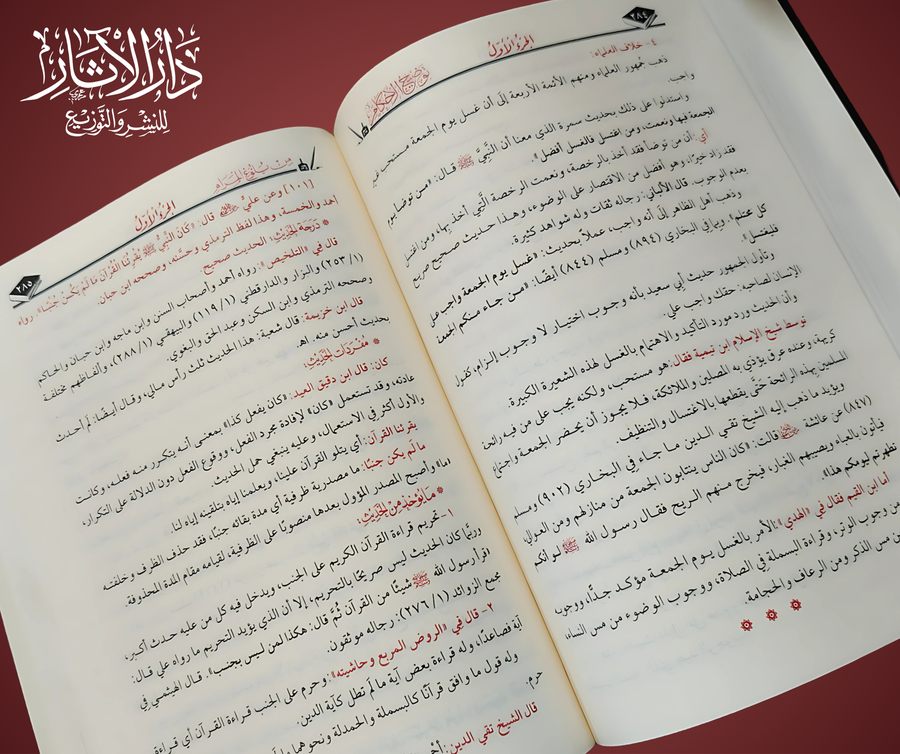 دار الآثار
للنشر والتوزيع
٢٨٤
الجزء الأول
توضيح الأحكام
٤- خلاف العلماء:
ذهب جمهور العلماء ومنهم الأئمة الأربعة إلى أن غسل يوم الجمعة مستحب غير
واجب.
واستدلوا على ذلك بحديث سمرة الذي معنا أن النَّبيَّ ﷺ قال: «من توضأ يوم
الجمعة فبها ونعمت، ومن اغتسل فالغسل أفضل».
أي: أن من توضأ فقد أخذ بالرخصة، ونعمت الرخصة الَّتي أخذ بها، ومن اغتسل
فقد زاد خيرًا، وهو أفضل من الاقتصار على الوضوء، وهذا حديث صحيح صريح
بعدم الوجوب. قال الألباني: رجاله ثقات وله شواهد كثيرة.
وذهب أهل الظاهر إلى أنه واجب، عملاً بحديث: «غسل يوم الجمعة واجب على
كل محتلم» وبما في البخاري (٨٩٤) ومسلم (٨٤٤) أيضًا: «من جاء منكم الجمعة
فليغتسل».
وتأول الجمهور حديث أبي سعيد بأنه وجوب اختيار لا وجوب إلزام، كقول
الإنسان لصاحبه: حقك واجب علي.
وأن الحديث ورد مورد التأكيد والاهتمام بالغسل لهذه الشعيرة الكبيرة.
توسط شيخ الإسلام ابن تيمية فقال: هو مستحب، ولكنه يجب على من فيه رائحة
كريهة، وعنده عرق يؤذي به المصلين والملائكة، فلا يجوز أن يحضر الجمعة واجتماع
المسلمين بهذه الرائحة حتَّى يقطعها بالاغتسال والتنظيف.
ويؤيد ما ذهب إليه الشيخ تقي الدين ما جاء في البخاري (٩٠٢) ومسلم
(٨٤٧) عن عائشة قالت: «كان الناس ينتابون الجمعة من منازلهم ومن العوالي
فيأتون بالعباء ويصيبهم الغبار، فيخرج منهم الريح فقال رسول الله ﷺ لو أنكم
تطهرتم ليومكم هذا».
أما ابن القيم فقال في «الهدي»: الأمر بالغسل يوم الجمعة مؤكد جدًّا، ووجوبه
من وجوب الوتر، وقراءة البسملة في الصلاة، ووجوب الوضوء من مس النساء،
من مس الذكر ومن الرعاف والحجامة.
٢٨٥
الجزء الأول
من بلوغ المرام
[١٠١] وعن عليٍّ قال: «كَانَ النَّبيُّ ﷺ يُقْرِئُنَا القُرْآنَ مَا لَمْ يَكُنْ جُنُبًا». رواه
أحمد والخمسة، وهذا لفظ الترمذي وحسَّنه، وصححه ابن حبان.
* درجة الحديث: الحديث صحيح.
قال في «التلخيص»: رواه أحمد وأصحاب السنن وابن ماجه وابن حبان والحاكم
(٢٥٣/١) والبزار والدارقطني (١١٩/١) والبيهقي (٢٨٨/١)، وألفاظهم مختلفة
وصححه الترمذي وابن السكن وعبد الحق والبغوي.
قال ابن خزيمة: قال شعبة: هذا الحديث ثلث رأس مالي، وقال أيضًا: لم أحدث
بحديث أحسن منه. اهـ
* مفردات الحديث:
كان: قال ابن دقيق العيد: «كان يفعل كذا» بمعنى أنه يتكرر منه فعله، وكانت
عادته، وقد تستعمل «كان» لإفادة مجرد الفعل، ووقوع الفعل دون الدلالة على التكرار،
والأول أكثر في الاستعمال، وعليه ينبغي حمل الحديث.
يقرئنا القرآن: أي يتلو القرآن علينا، ويعلمنا إياه بتلقينه إياه لنا.
ما لم يكن جنبًا: ما مصدرية ظرفية أي مدة بقائه جنبًا، فقد حذف الظرف وخلفته
«ما» وأصبح المصدر المؤول بعدها منصوبًا على الظرفية، لقيامه مقام المدة المحذوفة.
* ما يؤخذ من الحديث:
١- تحريم قراءة القرآن الكريم على الجنب، ويدخل فيه كل من عليه حدث أكبر،
وربَّما كان الحديث ليس صريحًا بالتحريم، إلا أن الذي يؤيد التحريم ما رواه علي قال:
اقرأ رسول الله ﷺ شيئًا من القرآن ثُمَّ قال: هكذا لمن ليس بجنب». قال الهيثمي في
مجمع الزوائد (٢٧٦/١): رجاله موثقون.
٢- قال في «الروض المربع وحاشيته»: وحرم على الجنب قراءة القرآن أي قراءة
آية فصاعدًا، وله قراءة بعض آية ما لَم تطل كآية الدين.
وله قول ما وافق قرآنًا كالبسملة والحمدلة ونحوهما
حرم.
قال الشيخ تقي الدين: